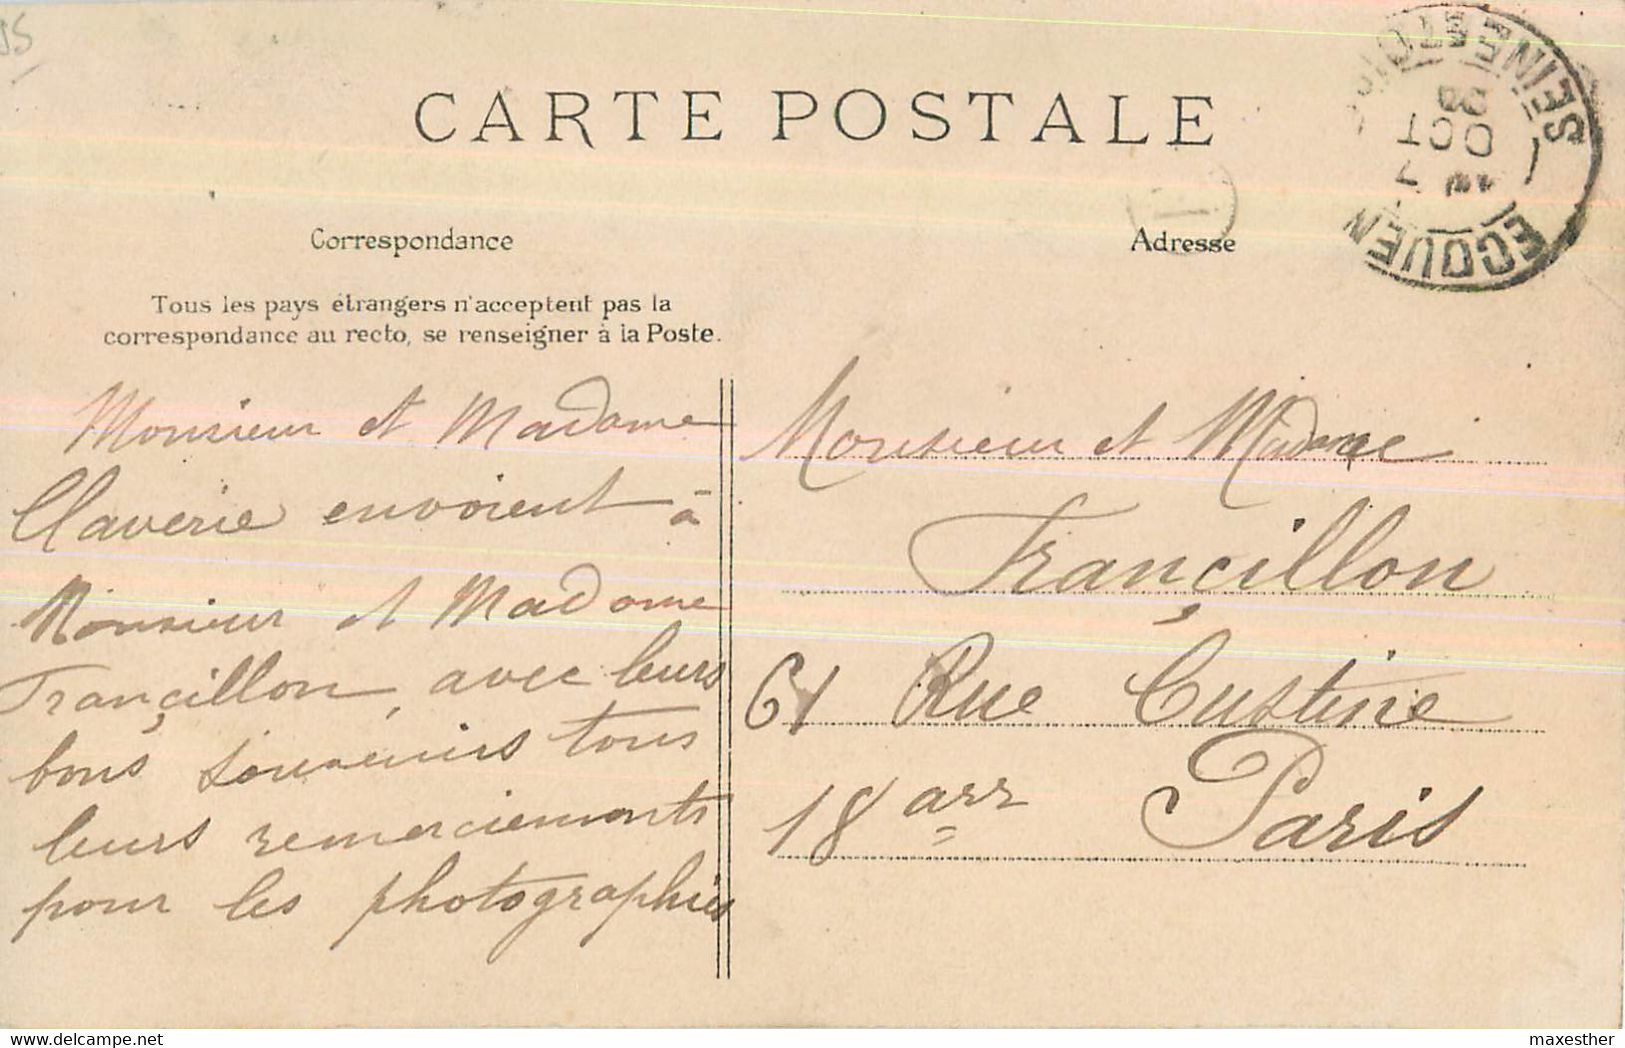 95
CARTE POSTALE
SEINE-ET-OISE
OCT
ECOUEN
Correspondance
Adresse
Tous les pays étrangers n'acceptent pas la
correspondance au recto, se renseigner à la Poste.
Monsieur et Madame
Claverie envoient à
Monsieur et Madame
Françillon, avec leurs
bons souvenirs tous
leurs remerciements
pour les photographies
Monsieur et Madame
Françillon
61 Rue Custine
18 arr Paris
delcampe.net
maxesther